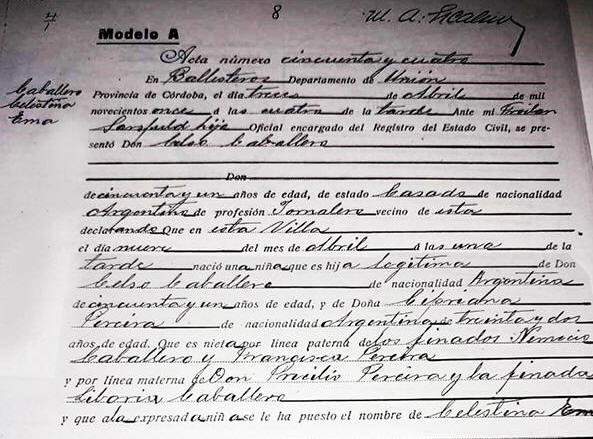 8
M. A. Escalera
Modelo A
Acta número cincuenta y cuatro
En Ballesteros Departamento de Unión
Provincia de Córdoba, el día trece de Abril de mil
Caballero
Celestina
Ema
novecientos once á las cuatro de la tarde Ante mí Froilan
Sarsfield hijo Oficial encargado del Registro del Estado Civil, se pre-
sentó Don Celso Caballero
Don
de cincuenta y un años de edad, de estado Casado de nacionalidad
Argentino de profesión Jornalero vecino de esta
declarando Que en esta Villa
el día nueve del mes de Abril á las una de la
tarde nació una niña que es hija legitima de Don
Celso Caballero de nacionalidad Argentina
de cincuenta y un años de edad, y de Doña Cipriana
Pereira de nacionalidad Argentina de treinta y dos
años de edad. Que es nieta por línea paterna de los finados Nemecio
Caballero y Francisca Pereira
y por línea materna de Don Pricilio Pereira y la finada
Liboria Caballero
y que a la expresada niña se le ha puesto el nombre de Celestina Em